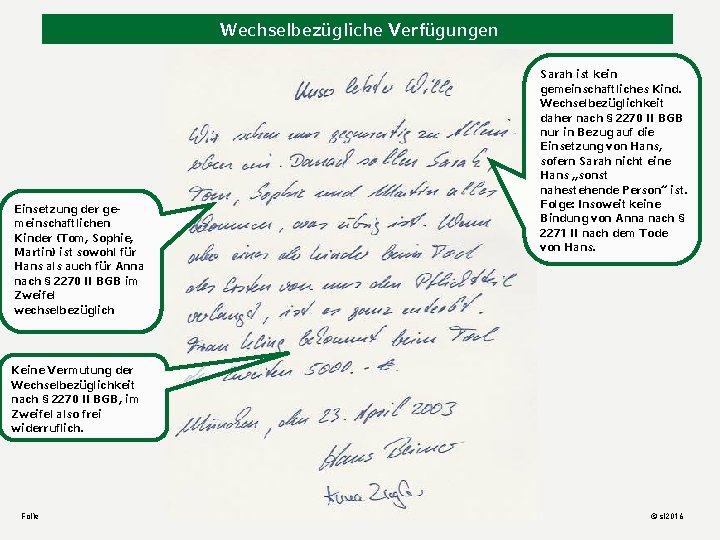 Wechselbezügliche Verfügungen
Unser letzter Wille
Wir setzen uns gegenseitig zu Allein-
erben ein. Danach sollen Sarah,
Tom, Sophie und Martin alles
bekommen, was übrig ist. Wenn
aber eines der Kinder beim Tod
des Ersten von uns den Pflichtteil
verlangt, ist es ganz enterbt.
Frau Kling bekommt beim Tod
des zweiten 5000.- €.
München, den 23. April 2003
Hans Beimer
Anna Ziegler
Sarah ist kein
gemeinschaftliches Kind.
Wechselbezüglichkeit
daher nach § 2270 II BGB
nur in Bezug auf die
Einsetzung von Hans,
sofern Sarah nicht eine
Hans „sonst
nahestehende Person“ ist.
Folge: Insoweit keine
Bindung von Anna nach §
2271 II nach dem Tode
von Hans.
Einsetzung der ge-
meinschaftlichen
Kinder (Tom, Sophie,
Martin) ist sowohl für
Hans als auch für Anna
nach § 2270 II BGB im
Zweifel
wechselbezüglich
Keine Vermutung der
Wechselbezüglichkeit
nach § 2270 II BGB, im
Zweifel also frei
widerruflich.
Folie
© sl2016